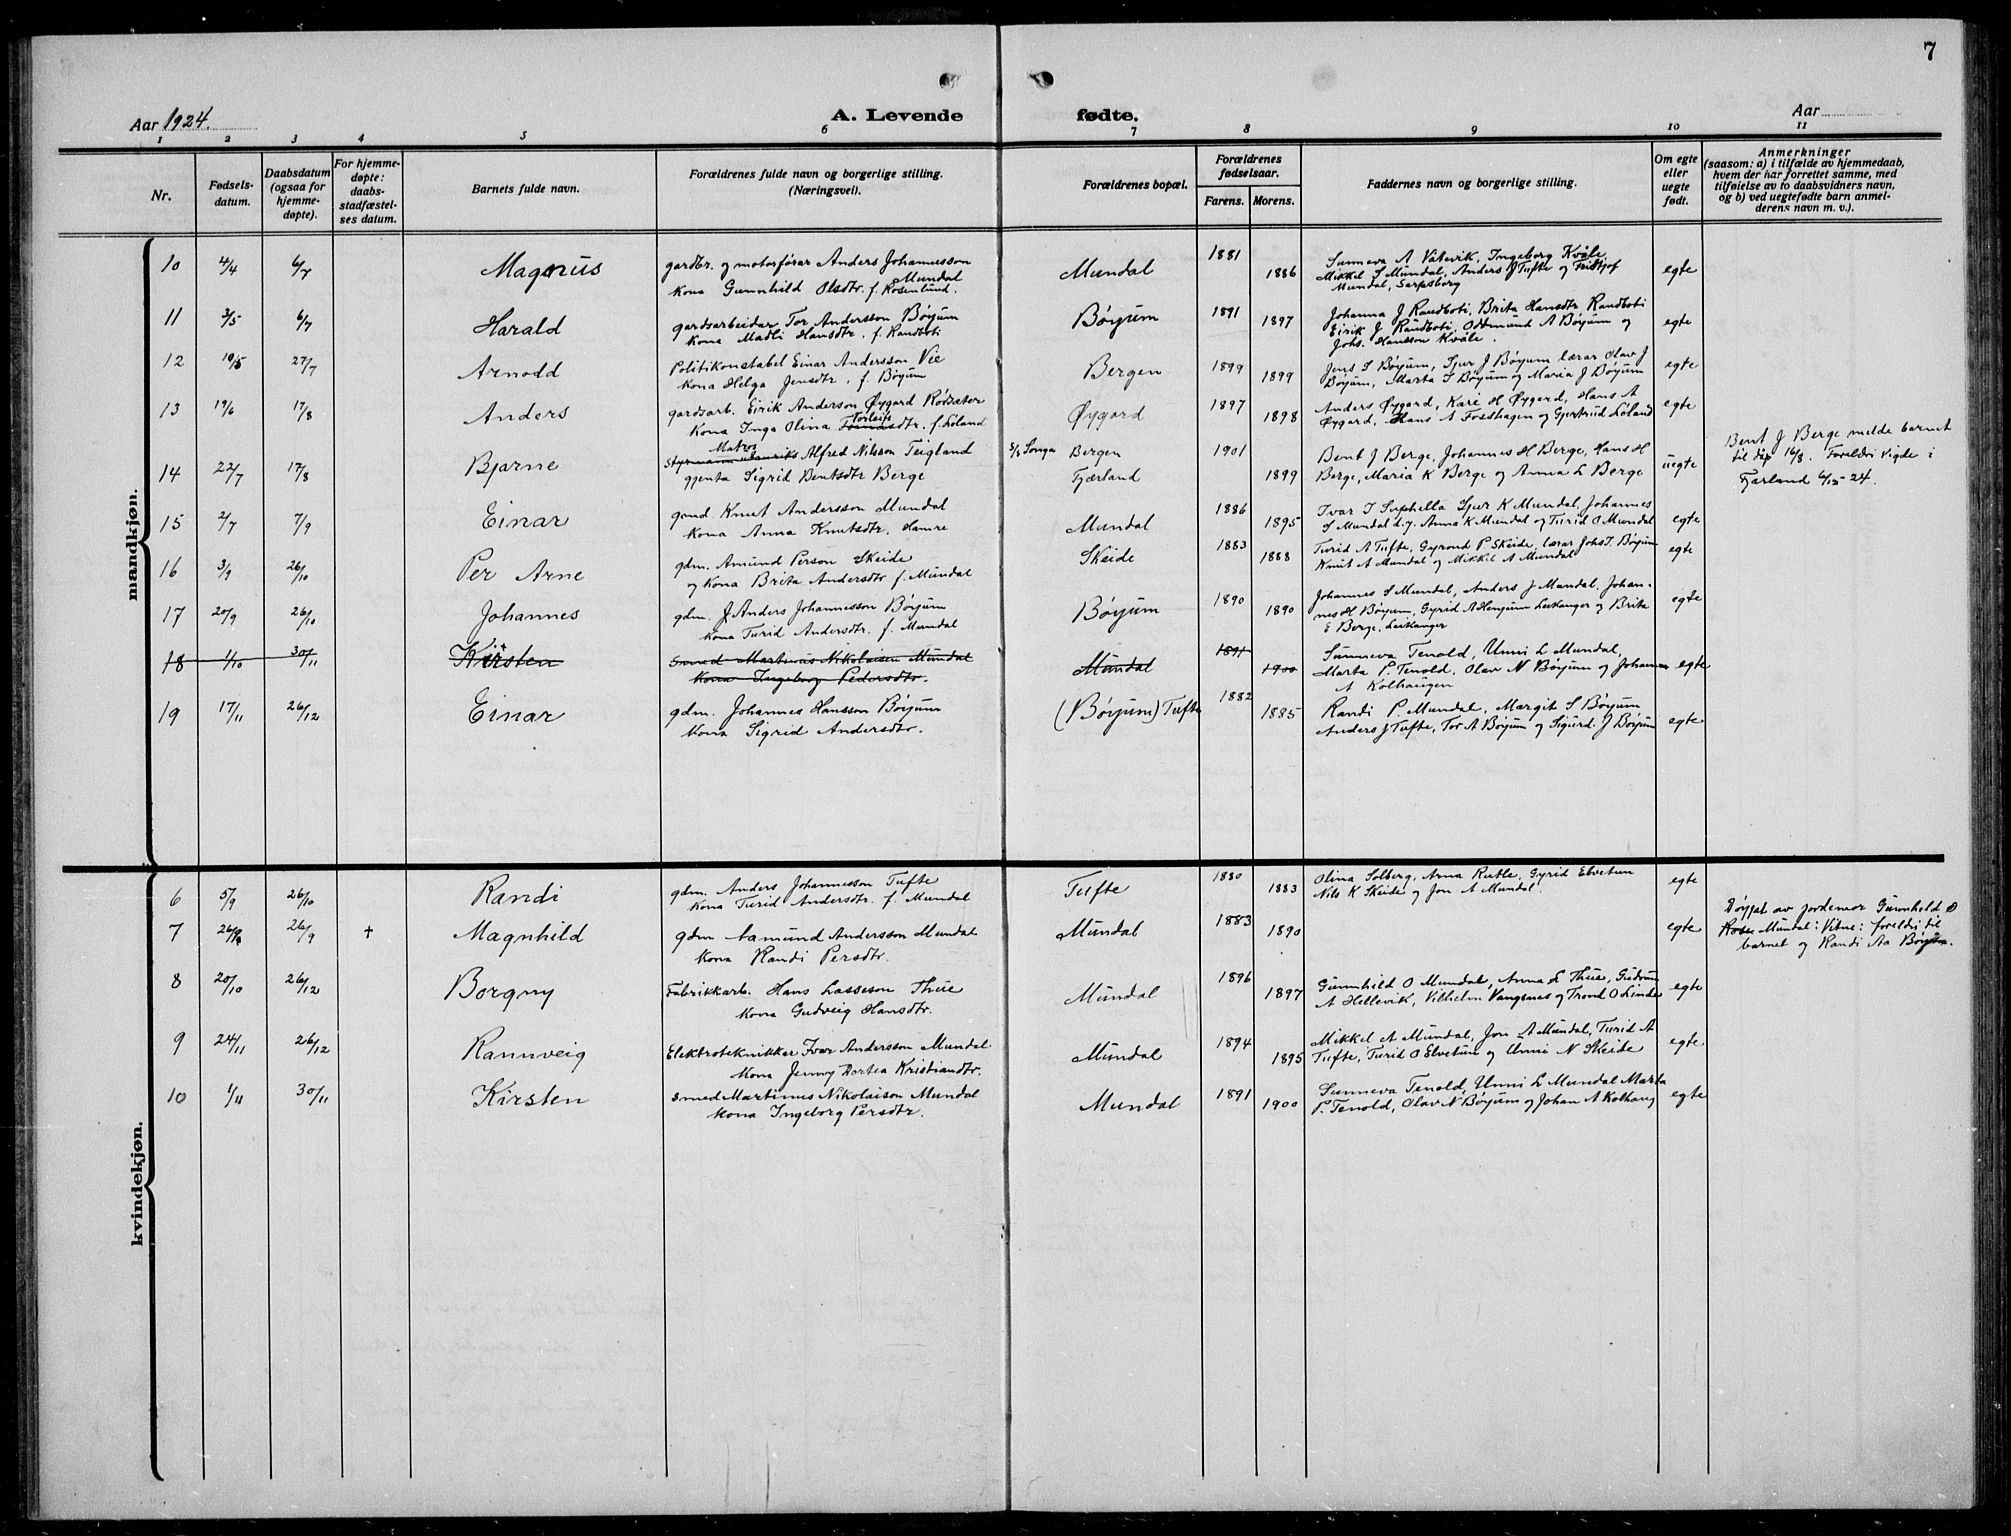 7
Aar 1924.
A. Levende fødte.
Aar
1 2 3 4 5 6 7 8 9 10 11
Nr.
Fødsels-
datum.
Daabsdatum
(ogsaa for
hjemme-
døpte).
For hjemme-
døpte:
daabs-
stadfæstel-
ses datum.
Barnets fulde navn.
Forældrenes fulde navn og borgerlige stilling.
(Næringsvei).
Forældrenes bopæl.
Forældrenes
fødselsaar.
Farens. Morens.
Faddernes navn og borgerlige stilling.
Om egte
eller
uegte
født.
Anmerkninger
(saasom: a) i tilfælde av hjemmedaab,
hvem der har forrettet samme, med
tilføielse av to daabsvidners navn,
og b) ved uegtefødte barn anmel-
derens navn m. v.).
mandkjøn.
10 4/4 6/7 Magnus
gardbr. og motorførar Anders Johannesson
Mundal
kona Gunnhild Olsdtr. f. Rosenlund.
Mundal 1881 1886
Sunneva A Vatevik, Ingeborg Kvåle
Mikkel S Mundal, Anders J Tufte og Fridtjof
Mundal, Sarpsborg
egte
11 3/5 6/7 Harald
gardsarbeidar Tor Andersson Bøyum
kona Madli Hansdtr. f. Randboti
Bøyum 1891 1897
Johanna J Randboti, Brita Hansdtr Randboti
Eirik J. Randboti, Oddmund A Bøyum og
Johs. Hansson Kvåle.
egte
12 19/5 27/7 Arnodd
Politikonstabel Einar Andersson Vie
kona Helga Jensdtr. f. Bøyum
Bergen 1899 1899
Jens S Bøyum, Sjur J Bøyum lærar Olav J
Bøyum, Marta S Bøyum og Maria J Bøyum
egte
13 19/6 17/8 Anders
gardsarb. Eirik Anderson Øygard Rødsæter
Torleifs
kona Inga Olina dtr. f. Loland
Øygard 1897 1898
Anders Øygard, Kari H Øygard, Hans A
Øygard, Hans A Fosshagen og Gjertrud Loland
egte
14 22/7 17/8 Bjarne
Matros
Alfred Nilsson Teigland
gjenta Sigrid Bentsdtr Berge
s/s Songa Bergen
Fjærland
1901 1899
Bent J Berge, Johannes H Berge, Hans H
Berge, Maria K Berge og Anna L Berge
uegte
Bent J Berge melde barnet
til dåp 16/8. Foreldri vigde i
Fjærland 6/12-24.
15 2/7 7/9 Einar
gmd Knut Andersson Mundal
kona Anna Knutsdtr. Hamre
Mundal 1886 1895
Ivar I Suphella Sjur K Mundal, Johannes
S Mundal d.y. Anna K Mundal og Turid O Mundal
egte
16 3/9 26/10 Per Arne
gdm. Amund Person Skeide
og kona Brita Andersdtr f. Mundal
Skeide 1883 1888
Turid A Tufte, Gyrond P Skeide, lærar Johs I. Bøyum
Knut A Mundal og Mikkel A Mundal
egte
17 20/9 26/10 Johannes
gdm. J. Anders Johannesson Bøyum
kona Turid Andersdtr. f. Mundal
Bøyum 1890 1890
Johannes S Mundal, Anders J Mundal, Johan-
nes H Bøyum, Gyrid A Henjum Leikanger og Brita
E Berge, Leikanger
egte
18 1/10 30/11 Kirsten
Smed Martinus Nikolaisen Mundal
kona Ingeborg Pedersdtr.
Mundal 1891 1900
Sunneva Tenold, Unni L Mundal,
Marta P. Tenold, Olav N Bøyum og Johannes
A Kolhaugen
egte
19 17/11 26/12 Einar
gdm. Johannes Hansson Bøyum
kona Sigrid Andersdtr.
(Bøyum) Tufte 1882 1885
Randi P. Mundal, Margit S Bøyum
Anders J Tufte, Tor A Bøyum og Sigurd J Bøyum
egte
kvindekjøn.
6 5/9 26/10 Randi
gdm. Anders Johannesson Tufte
kona Turid Andersdtr. f. Mundal
Tufte 1880 1883
Olina Solberg, Arna Rutle, Gyrid Elvetun
Nils K Skeide og Jon A Mundal.
egte
7 26/9 26/9 † Magnhild
gdm Aamund Andersson Mundal
kona Randi Persdtr.
Mundal 1883 1890
egte
Døypt av jordemor Gunnhild O
Mundal: Vitne: foreldri til
barnet og Randi Aa Bøyum.
8 20/10 26/12 Borgny
Fabrikkarb. Hans Lasseson Thue
kona Gudveig Hansdtr.
Mundal 1896 1897
Gunnhild O Mundal, Anna L Thue, Gudrun
A Hellevik, Vilhelm Vangsnes og Trond O Linde
egte
9 24/11 26/12 Rannveig
Elektroteknikker Ivar Andersson Mundal
kona Jenny Dortea Kristiandtr.
Mundal 1894 1895
Mikkel A Mundal, Jon A Mundal, Turid A
Tufte, Turid O Elvetun og Unni N Skeide
egte
10 1/11 30/11 Kirsten
smed Martinus Nikolaison Mundal
kona Ingeborg Persdtr.
Mundal 1891 1900
Sunneva Tenold, Unni L Mundal Marta
P. Tenold, Olav N Bøyum og Johan A Kolhaug
egte